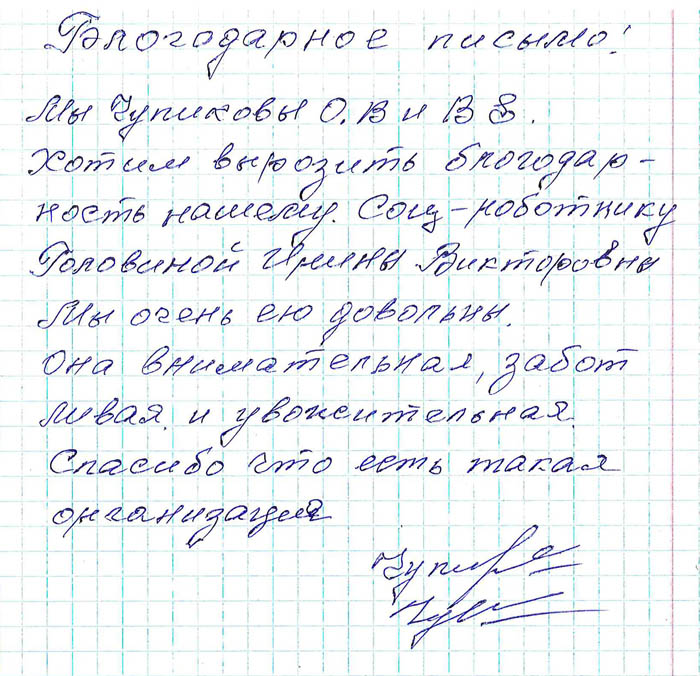 Благодарное письмо!
Мы Чупиковы О.В и В Е.
Хотим вырозить блогодар-
ность нашему. Соц-роботнику
Головиной Ирины Викторовны
Мы очень ею довольны.
Она внимательная, забот
ливая. и увожительная.
Спасибо что есть такая
организация